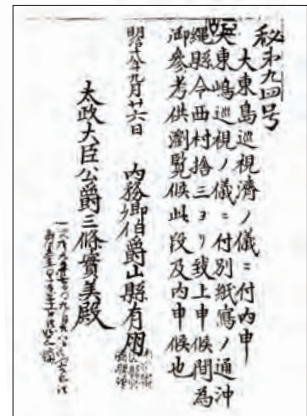 秘第九四号
大東島巡視濟ノ儀ニ付内申
大東嶋巡視ノ儀ニ付別紙寫ノ通沖
繩縣令西村捨三ヨリ我上申候間為
御参考供瀏覧候此段及内申候也
明治十八年九月廿六日 内務卿伯爵山縣有朋
太政大臣公爵三條實美殿